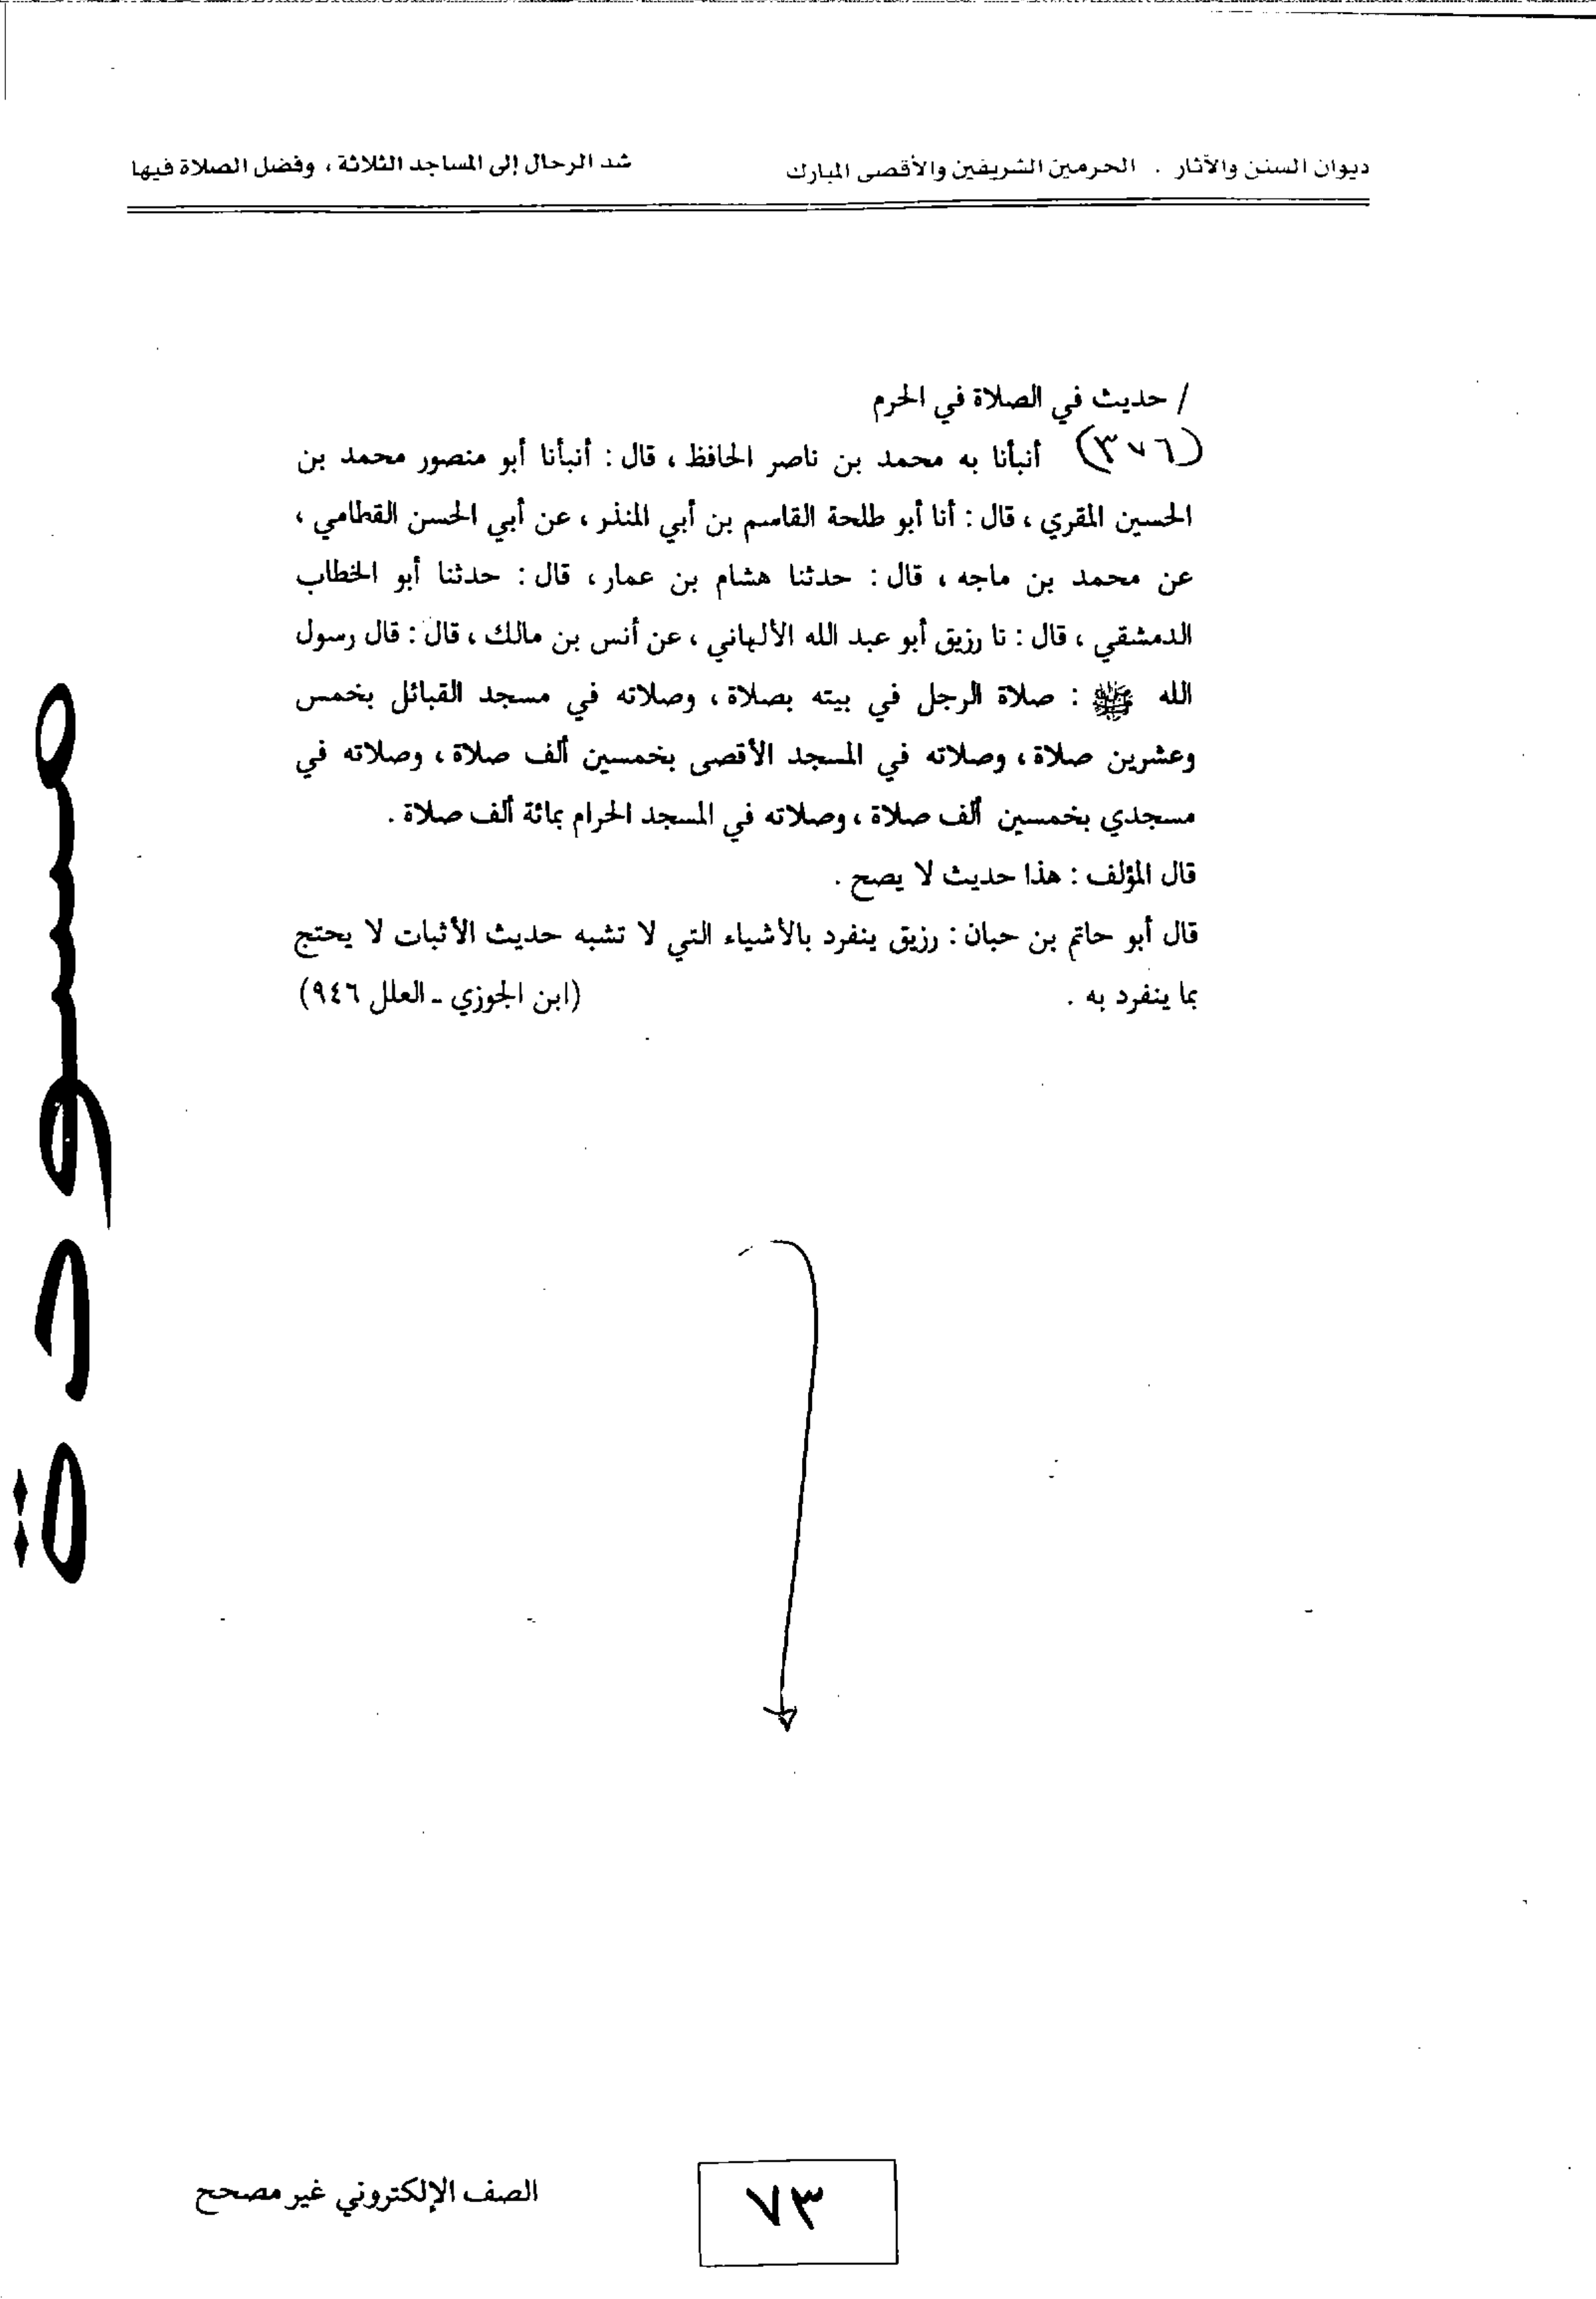 ديوان السنن والآثار . الحرمين الشريفين والأقصى المبارك شد الرحال إلى المساجد الثلاثة ، وفضل الصلاة فيها
/ حديث في الصلاة في الحرم
(٣٧٦) أنبأنا به محمد بن ناصر الحافظ ، قال : أنبأنا أبو منصور محمد بن
الحسين المقري ، قال : أنا أبو طلحة القاسم بن أبي المنذر ، عن أبي الحسن القطامي ،
عن محمد بن ماجه ، قال : حدثنا هشام بن عمار ، قال : حدثنا أبو الخطاب
الدمشقي ، قال : نا رزيق أبو عبد الله الألهاني ، عن أنس بن مالك ، قال : قال رسول
الله ﷺ : صلاة الرجل في بيته بصلاة ، وصلاته في مسجد القبائل بخمس
وعشرين صلاة ، وصلاته في المسجد الأقصى بخمسين ألف صلاة ، وصلاته في
مسجدي بخمسين ألف صلاة ، وصلاته في المسجد الحرام بمائة ألف صلاة .
قال المؤلف : هذا حديث لا يصح .
قال أبو حاتم بن حبان : رزيق ينفرد بالأشياء التي لا تشبه حديث الأثبات لا يحتج
بما ينفرد به . (ابن الجوزي - العلل ٩٤٦)
مسودة
٧٣
الصف الإلكتروني غير مصحح